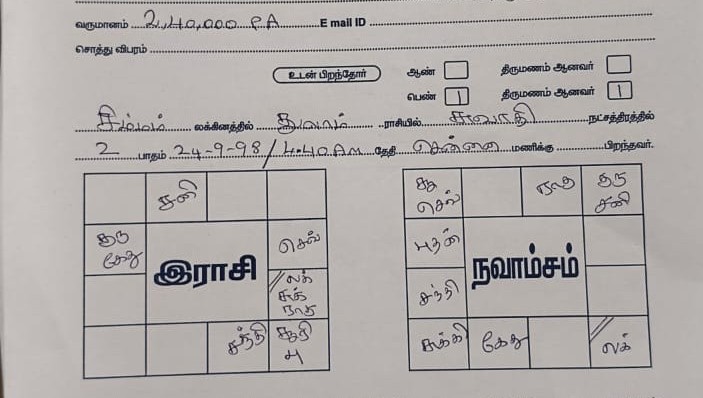 வருமானம் 2,40,000 PA E mail ID
சொத்து விபரம்
உடன் பிறந்தோர் ஆண் திருமணம் ஆனவர்
பெண் 1 திருமணம் ஆனவர் 1
சிம்மம் லக்கினத்தில் துலாம் ராசியில் சுவாதி நட்சத்திரத்தில்
2 பாதம் 24-9-98 / 4.40 AM தேதி சென்னை மணிக்கு பிறந்தவர்.
சனி
குரு
கேது
செவ்
இராசி
லக்
சுக்
ராகு
சந்தி
சூரி
பு
செவ்
ராகு
குரு
சனி
புதன்
நவாம்சம்
சந்தி
சுக்கி
கேது
லக்